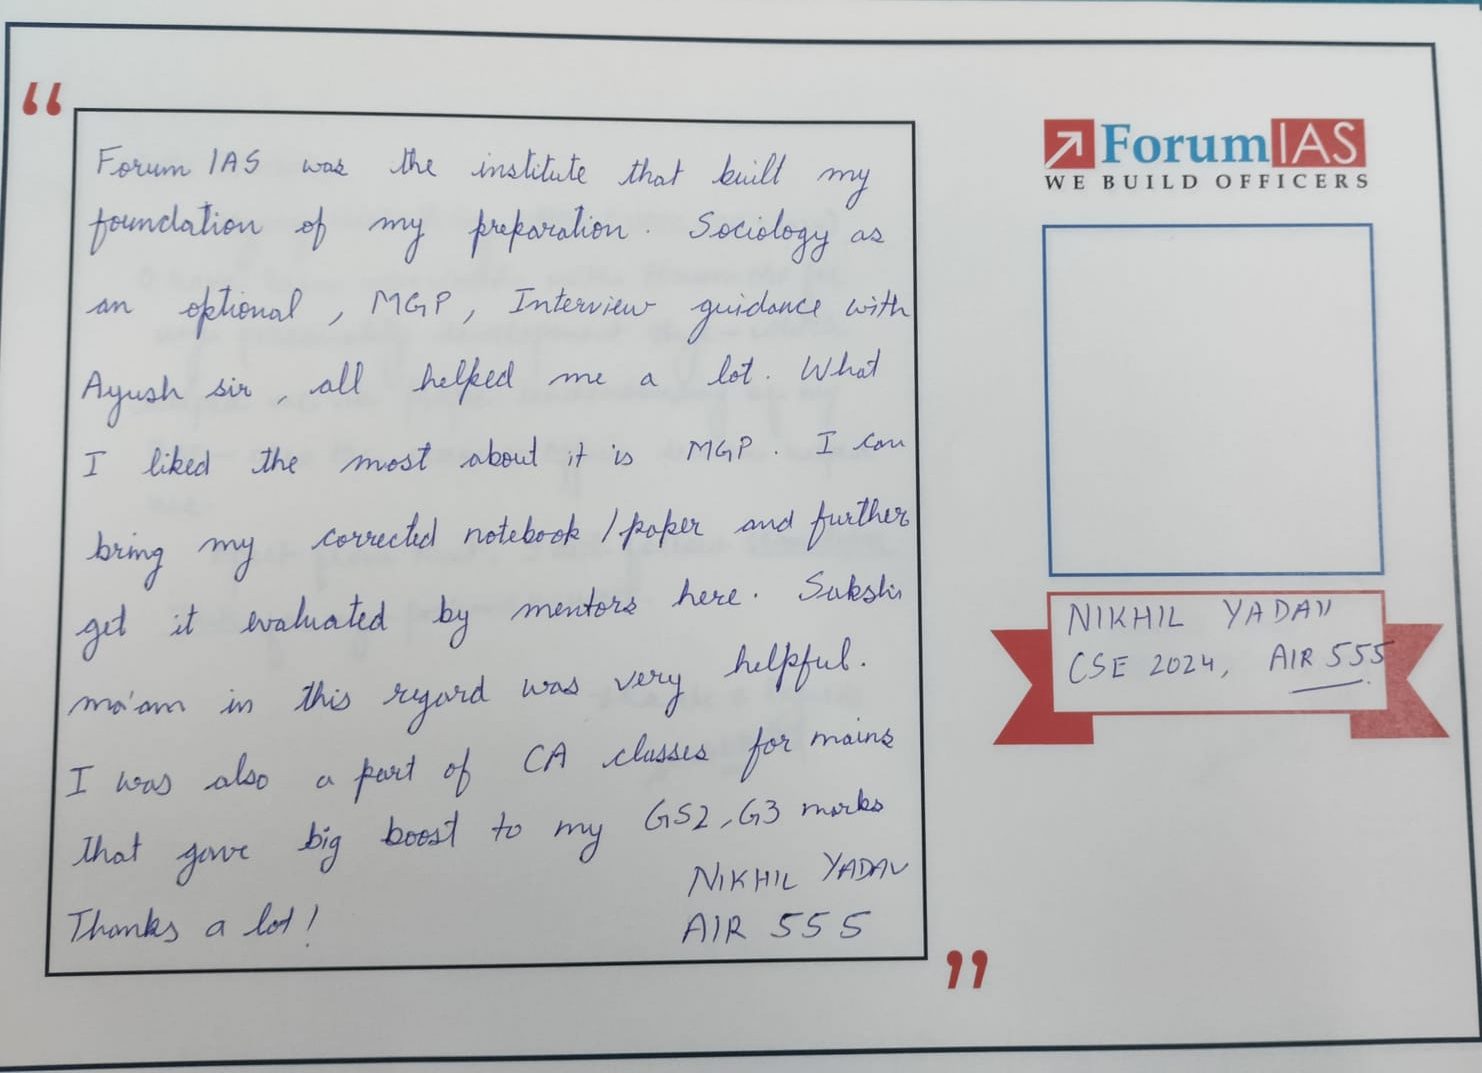 Forum IAS was the institute that built my
foundation of my preparation. Sociology as
an optional, MGP, Interview guidance with
Ayush sir, all helped me a lot. What
I liked the most about it is MGP. I can
bring my corrected notebook/paper and further
get it evaluated by mentors here. Sakshi
ma'am in this regard was very helpful.
I was also a part of CA classes for mains
that gave big boost to my GS2, G3 marks
Thanks a lot!
NIKHIL YADAV
AIR 555
ForumIAS
WE BUILD OFFICERS
NIKHIL YADAV
CSE 2024, AIR 555